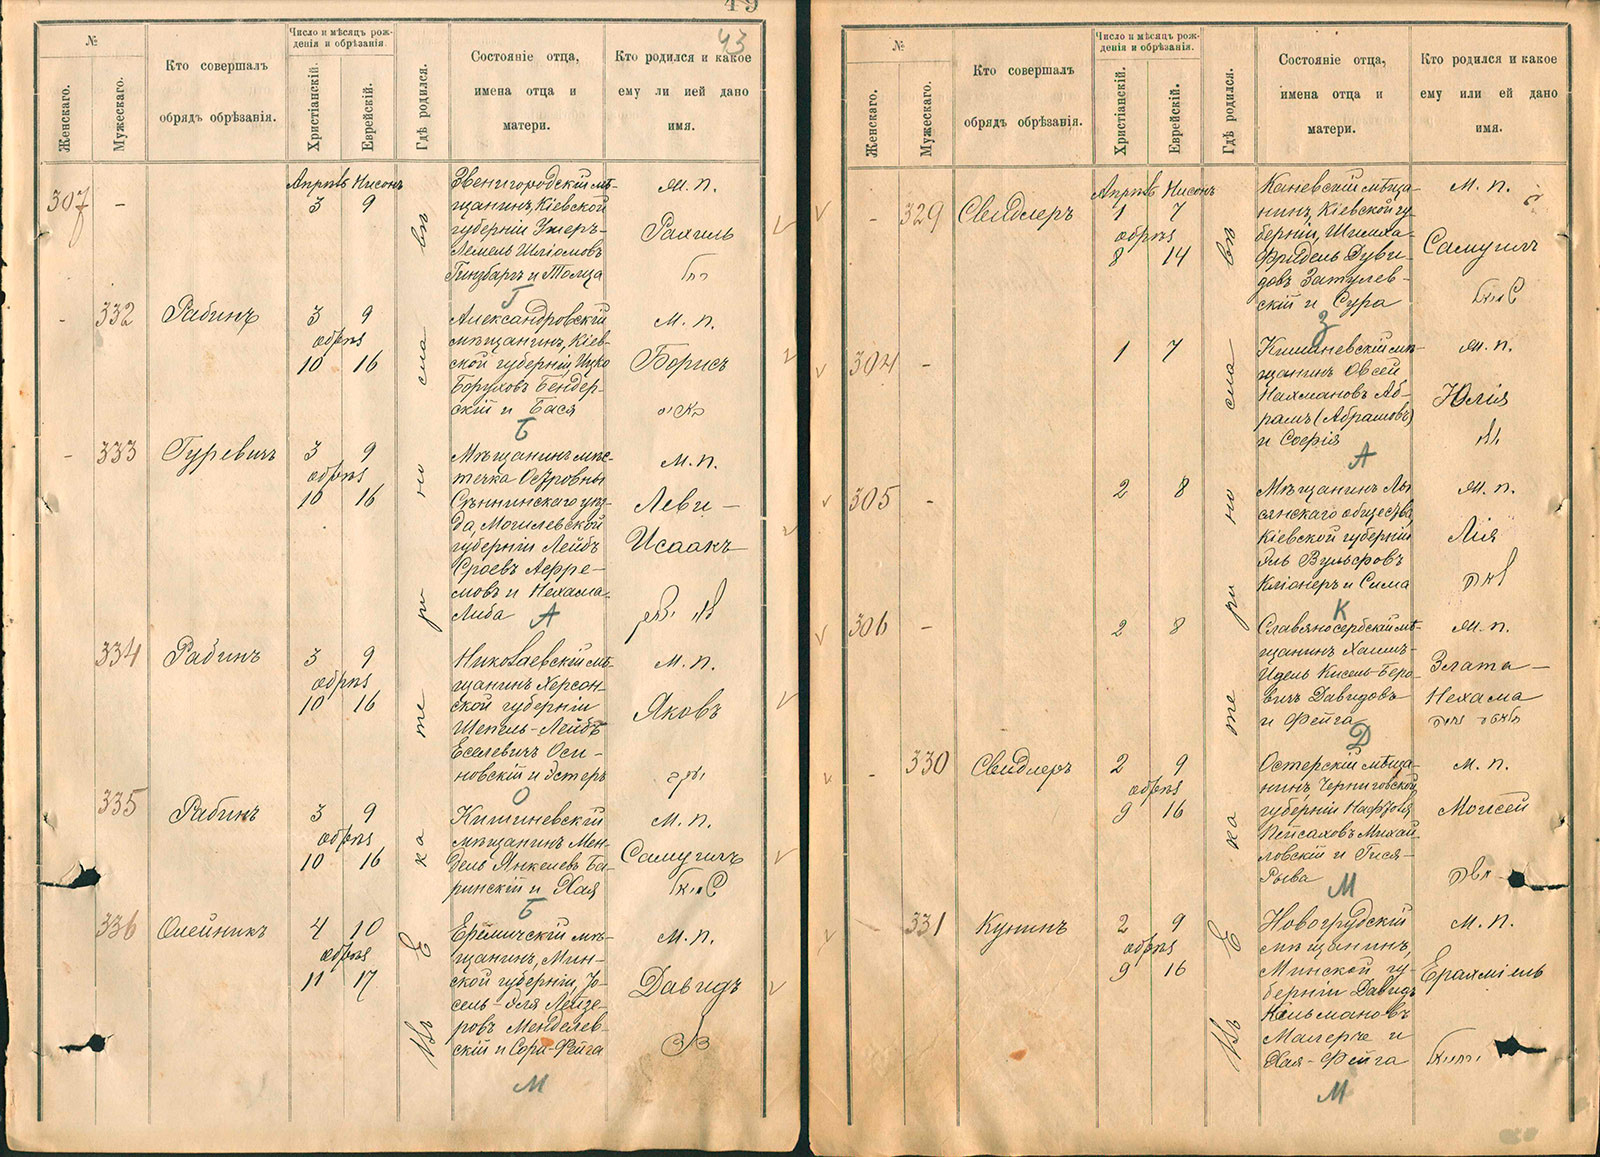 49
43
№
Женскаго.
Мужескаго.
Кто совершалъ
обрядъ обрѣзанія.
Число и мѣсяцъ рож-
денія и обрѣзанія.
Христіанскій.
Еврейскій.
Гдѣ родился.
Состояніе отца,
имена отца и
матери.
Кто родился и какое
ему ли ией дано
имя.
Въ Екатеринославѣ
307 -
Апрѣль Нисонъ
3 9
Звенигородскій мѣ-
щанинъ, Кіевской
губерніи
Лемель Шліомовъ
Гинзбургъ и
Г
м. п.
Рахиль
- 332 Рабинъ
3 9
обрѣз
10 16
Александровскій
мѣщанинъ, Кіев-
ской губерніи, Ицко
Боруховъ Бендер-
скій и Бася
Б
м. п.
Борисъ
- 333 Гуревичъ
3 9
обрѣз
10 16
Мѣщанинъ мѣс-
течка Островны
Сѣннинскаго уѣз-
да, Могилевской
губерніи Лейбъ
Сроевъ Ефре-
мовъ и Нехама-
Либа
А
м. п.
Леви -
Исаакъ
334 Рабинъ
3 9
обрѣз
10 16
Николаевскій мѣ-
щанинъ Херсон-
ской губерніи
Лейбъ
Еселевичъ Оси-
новскій и Эстеръ
О
м. п.
Яковъ
335 Рабинъ
3 9
обрѣз
10 16
Кишиневскій
мѣщанинъ Мен-
дель Янкелевъ Ба-
ринскій и Хая
Б
м. п.
Самуилъ
336 Олейникъ
4 10
обрѣз
11 17
Еремичскій мѣ-
щанинъ, Мин-
ской губерніи, Іо-
сель-Эля Лейзе-
ровъ Менделев-
скій и Сора-Фейга
М
м. п.
Давидъ
№
Женскаго.
Мужескаго.
Кто совершалъ
обрядъ обрѣзанія.
Число и мѣсяцъ рож-
денія и обрѣзанія.
Христіанскій.
Еврейскій.
Гдѣ родился.
Состояніе отца,
имена отца и
матери.
Кто родился и какое
ему или ей дано
имя.
Въ Екатеринославѣ
- 329 Свидлеръ
Апрѣль Нисонъ
1 7
обрѣз
8 14
Каневскій мѣща-
нинъ, Кіевской гу-
берніи, Шимха-
Фридель Дуви-
довъ Затулев-
скій и Сура
З
м. п.
Самуилъ
304 -
1 7
Кишиневскій мѣ-
щанинъ Овсей
Нахмановъ Аб-
рамъ (Абрамовъ)
и Софія
А
м. п.
Юлія
305 -
2 8
Мѣщанинъ Лы
сянскаго общества,
Кіевской губерніи
Эль Вульфовъ
Кліонеръ и Сима
К
м. п.
Лія
306 -
2 8
Славяносербскій мѣ-
щанинъ Хаимъ-
Идель Кисель-Беро-
вичъ Давидовъ
и Фейга
Д
м. п.
Злата -
Нехама
- 330 Свидлеръ
2 9
обрѣз
9 16
Остерскій мѣща-
нинъ, Черниговской
губерніи Нафтоля
Пейсаховъ Михай
ловскій и Гися-
Рыва
М
м. п.
Моисей
331 Кунинъ
2 9
обрѣз
9 16
Новогрудскій
мѣщанинъ,
Минской гу-
берніи Давидъ
Кельмановъ
Малеръ и
Хая-Фейга
М
м. п.
Ерахміель